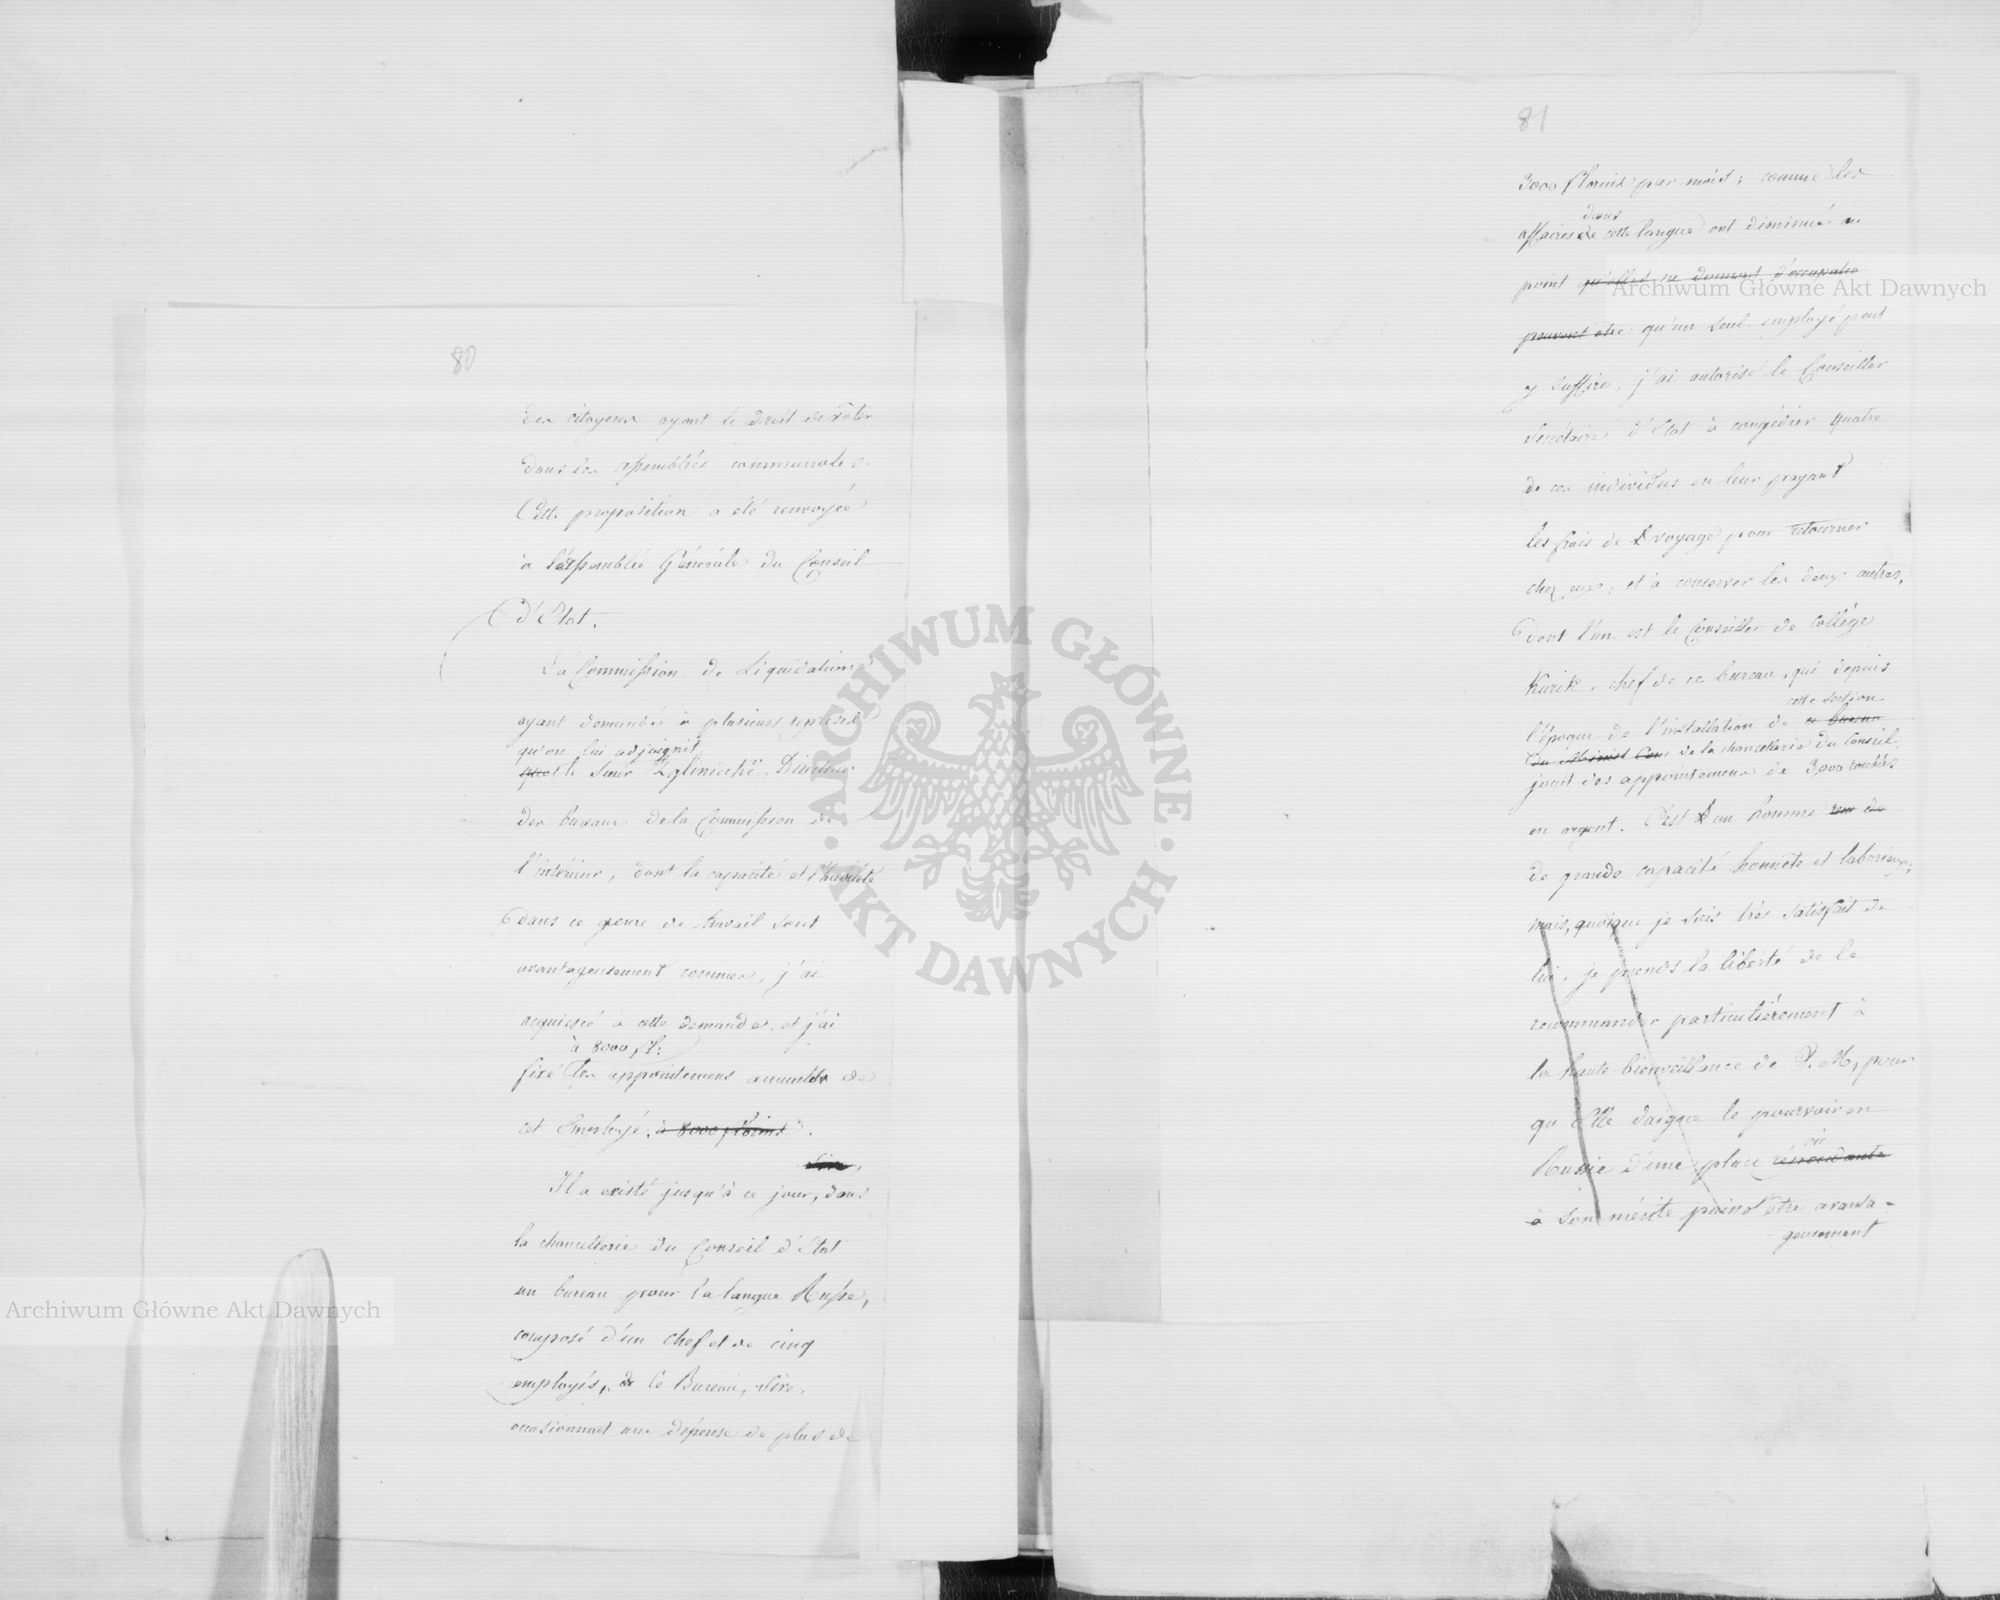 80
des citoyens ayant le droit de voter
dans les assemblées communales.
Cette proposition a été renvoyée
à l'Assemblée Générale du Conseil
d'Etat.
La Commission de Liquidation
ayant demandé à plusieurs reprises
qu'on lui adjoignit
le Sieur Zglinicki, Directeur
des bureaux de la Commission de
l'intérieur, dont la capacité et l'habileté
dans ce genre de travail sont
avantageusement connues, j'ai
acquiescé à cette demande, et j'ai
à 8000 fl:
fixé les appointemens annuels de
cet Employé, à 8000 florins.
Sire,
Il a existé jusqu'à ce jour, dans
la chancellerie du Conseil d'Etat
un bureau pour la langue Russe,
composé d'un chef et de cinq
employés, Ce Bureau, Sire,
occasionnait une dépense de plus de
81
3000 florins par mois; comme les
dans
affaires de cette langue ont diminué au
point qu'elles ne donnent d'occupation
pouvant etre qu'un seul employé peut
y suffire, j'ai autorisé le Conseiller
Secrétaire d'Etat à congédier quatre
de ces individus en leur payant
les frais de voyage pour retourner
chez eux; et à conserver les deux autres,
dont l'un est le Conseiller de Collège
Kurik, chef de ce bureau, qui depuis
cette section
l'époque de l'installation de ce bureau
de la chancellerie du Conseil,
jouit des appointemens de 3,000 roubles
en argent. C'est un homme
de grande capacité honnête et laborieux;
mais, quoique je sois très satisfait de
lui, je prends la liberté de le
recommander particulièrement à
la haute bienveillance de V. M, pour
qu'Elle daigne le pourvoir en
où
Russie d'une place répondante
à son mérite puisse etre avanta-
geusement
Archiwum Główne Akt Dawnych
Archiwum Główne Akt Dawnych
ARCHIWUM GŁÓWNE AKT DAWNYCH